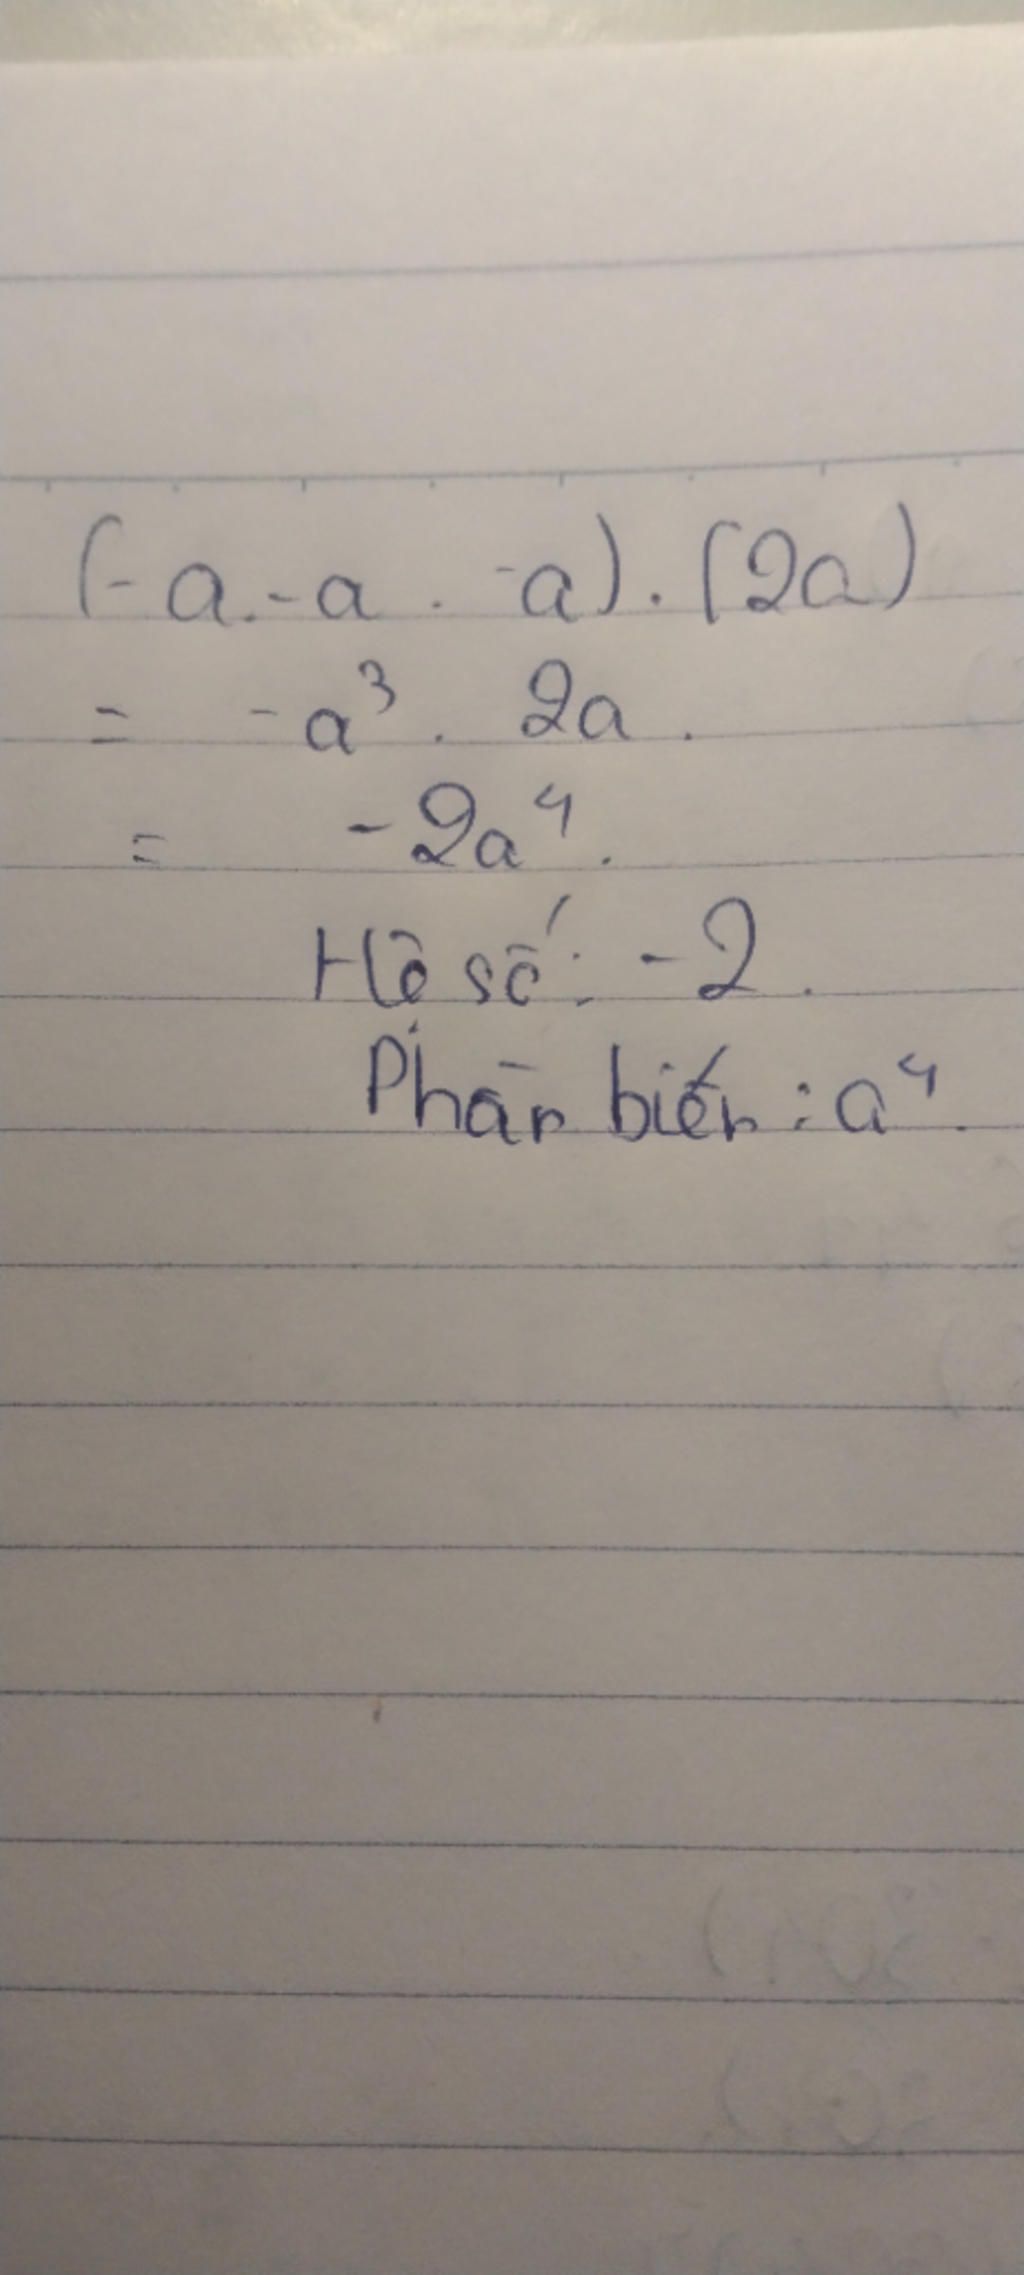 (-a.-a . -a).(2a)
= -a³. 2a.
= -2a⁴.
Hệ số: -2.
Phần biến: a⁴.